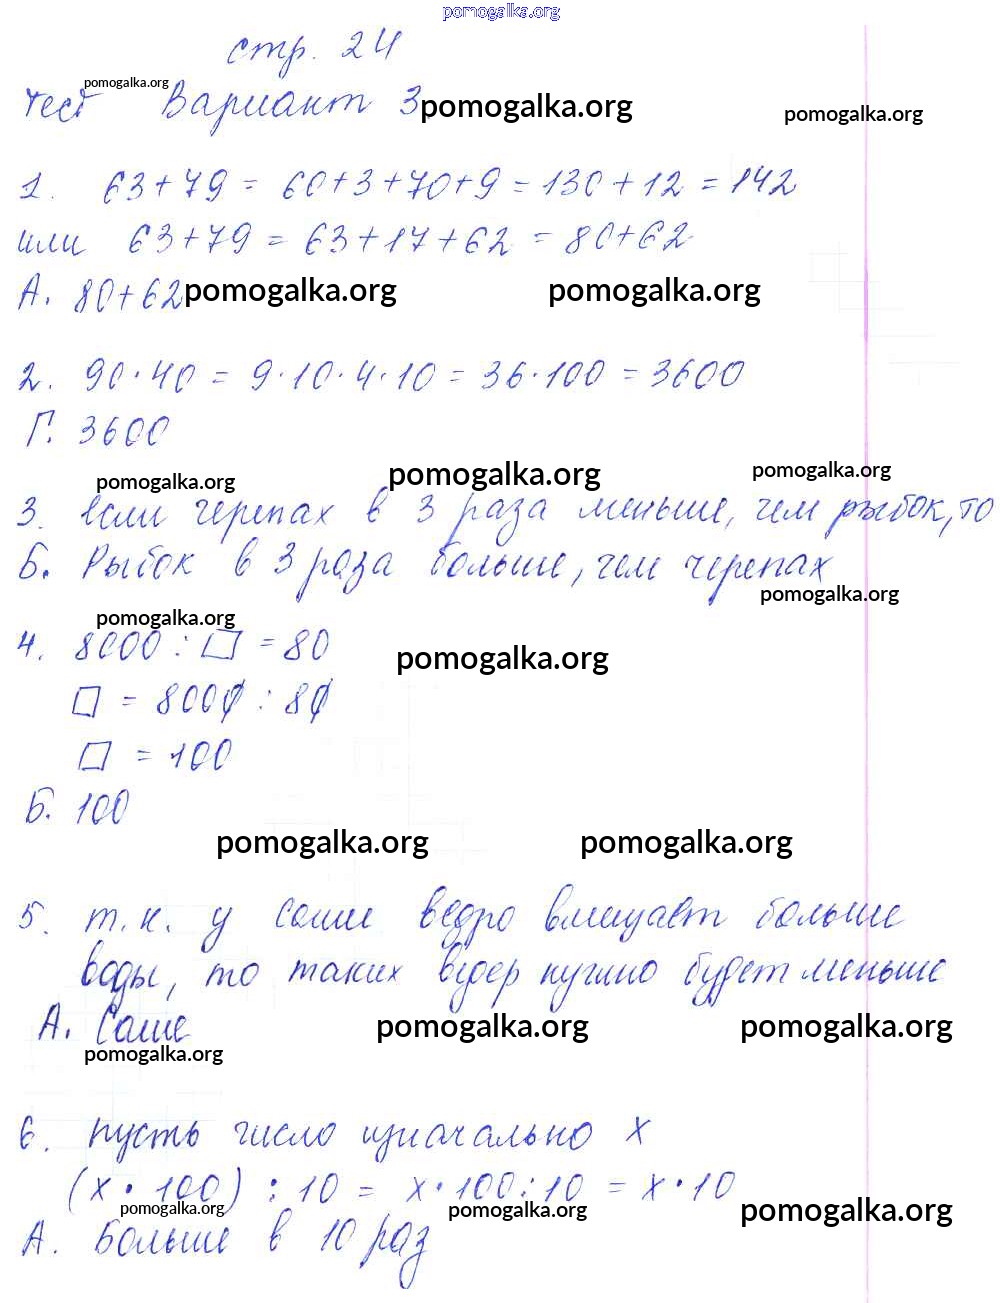 pomogalka.org
стр. 24
pomogalka.org
тест Вариант 3 pomogalka.org pomogalka.org
1. 63+79 = 60+3+70+9 = 130+12 = 142
или 63+79 = 63+17+62 = 80+62
А. 80+62 pomogalka.org pomogalka.org
2. 90·40 = 9·10·4·10 = 36·100 = 3600
Г. 3600
pomogalka.org pomogalka.org pomogalka.org
3. если черепах в 3 раза меньше, чем рыбок, то
Б. Рыбок в 3 раза больше, чем черепах
pomogalka.org
pomogalka.org
4. 8000 : □ = 80
pomogalka.org
□ = 8000 : 80
□ = 100
Б. 100
pomogalka.org pomogalka.org
5. т.к. у Саши ведро вмещает больше
воды, то таких вёдер нужно будет меньше
А. Саше pomogalka.org pomogalka.org
pomogalka.org
6. пусть число изначально х
(х · 100) : 10 = х · 100 : 10 = х · 10
pomogalka.org pomogalka.org pomogalka.org
А. Больше в 10 раз